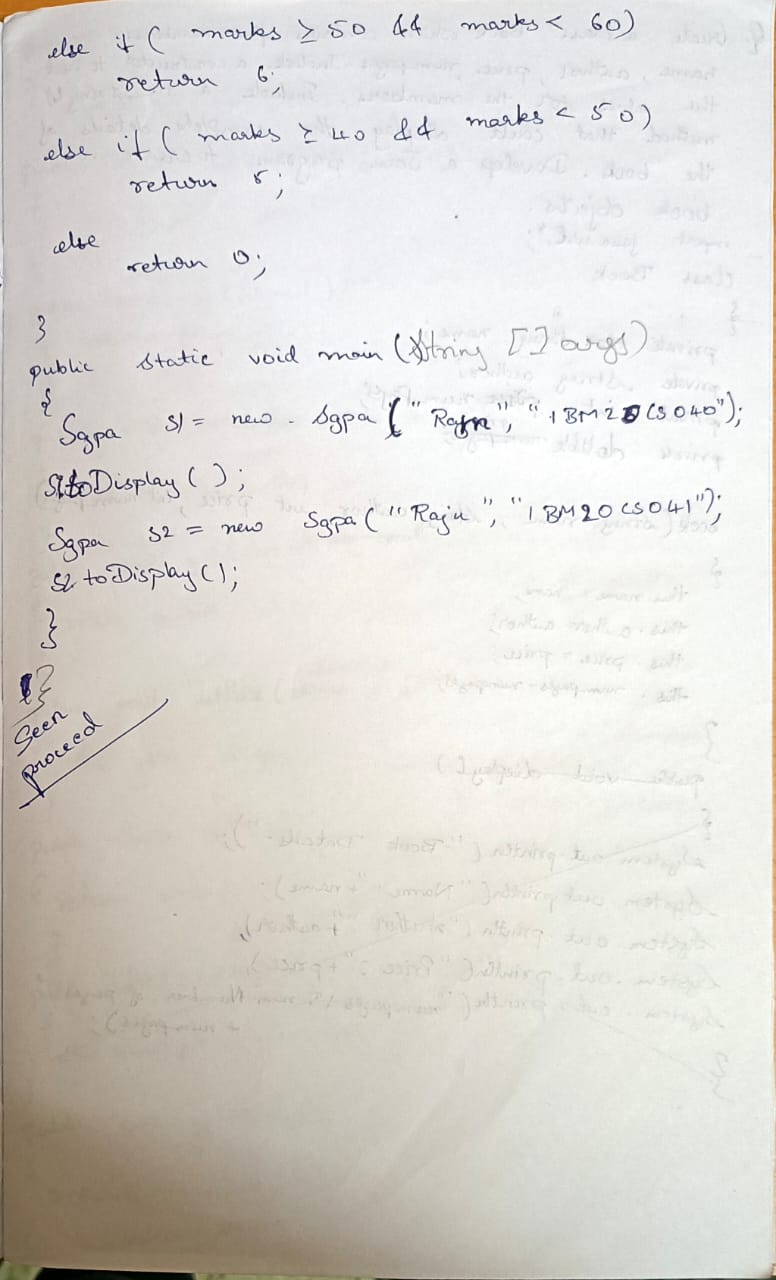 else if ( marks ≥ 50 && marks < 60)
return 6;
else if ( marks ≥ 40 && marks < 50)
return 5;
else
return 0;
}
public static void main (String [] args)
{
Sgpa S1 = new Sgpa ( "Raju", "1BM20CS040");
S1.toDisplay ( );
Sgpa S2 = new Sgpa ( "Raju", "1BM20CS041");
S2.toDisplay ( );
}
}
Seen
proceed